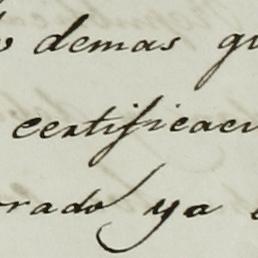 demas
certificac
rado ya